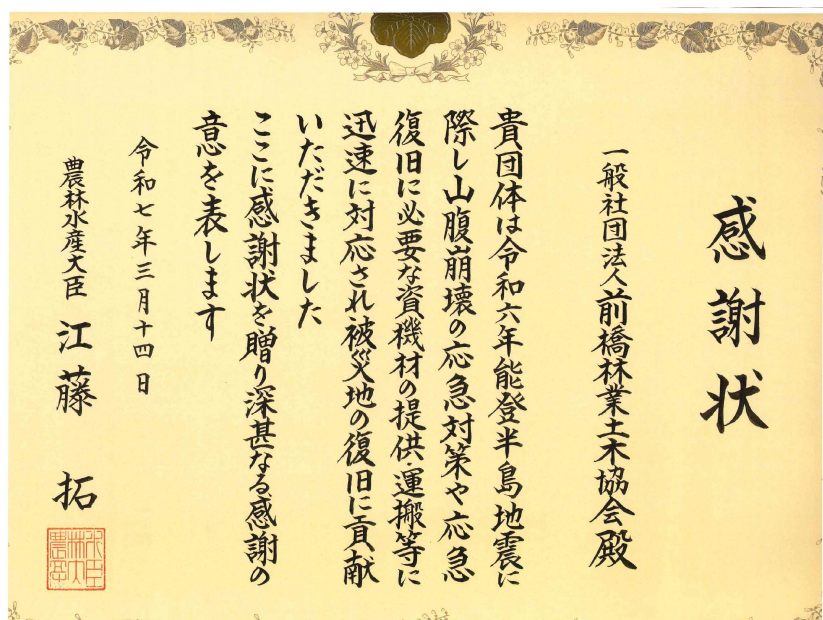 感謝状
一般社団法人前橋林業土木協会殿
貴団体は令和六年能登半島地震に
際し山腹崩壊の応急対策や応急
復旧に必要な資機材の提供・運搬等に
迅速に対応され被災地の復旧に貢献
いただきました
ここに感謝状を贈り深甚なる感謝の
意を表します
令和七年三月十四日
農林水産大臣 江藤 拓